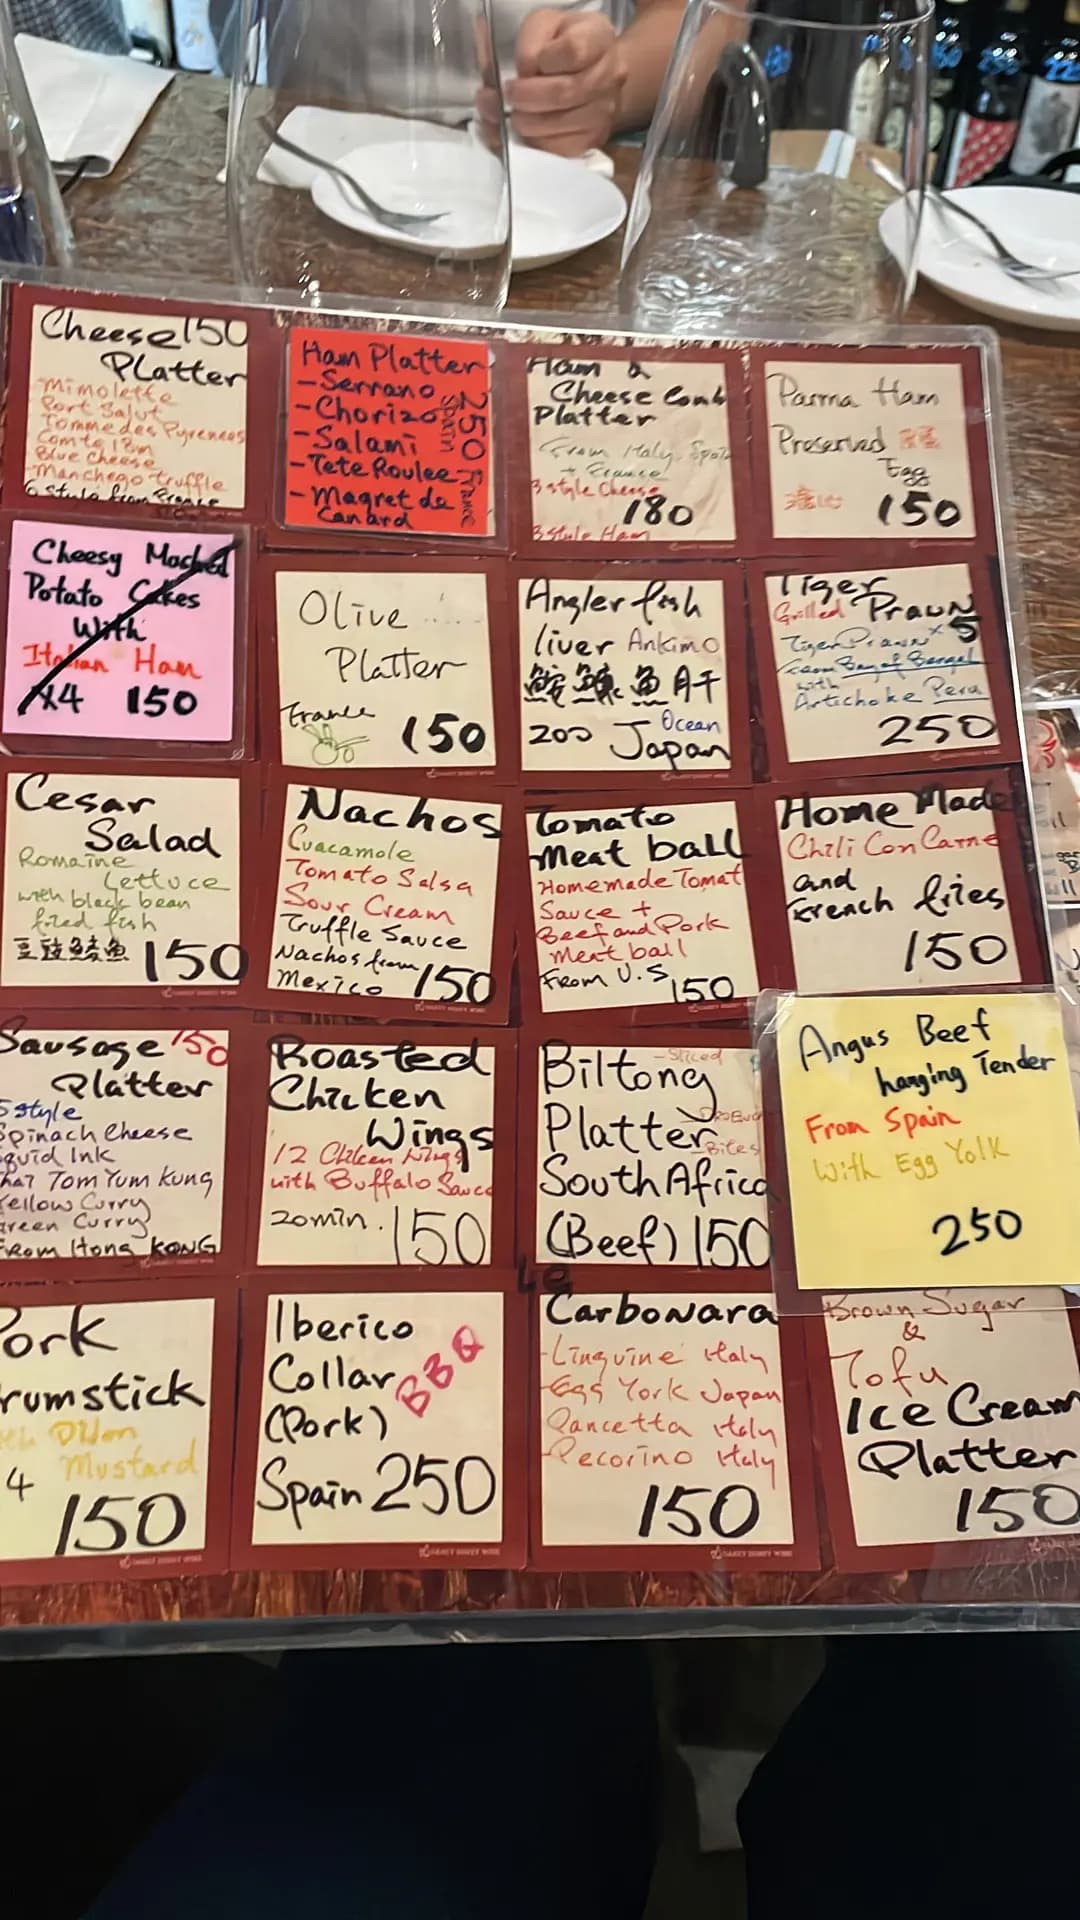 Cheese 150
Platter
Mimolette
Port Salut
Tommedes Pyrenees
Comte 18m
Blue Cheese
Manchego truffle
6 style from France
Ham Platter
- Serrano
- Chorizo
- Salami
- Tete Roulee
- Magret de
Canard
Spain
250
France
Ham &
Cheese Comb
Platter
From Italy, Spain
+ France
3 style Cheese
180
3 style Ham
Parma Ham
Preserved
Egg
150
Cheesy Mashed
Potato Cakes
With
Italian Ham
X4 150
Olive
Platter
France
150
Angler fish
liver Ankimo
鮟鱇魚肝
200 Ocean
Japan
Tiger
Grilled Prawn
Tiger Prawn x 5
from Bay of Bengal
with
Artichoke Peru
250
Cesar
Salad
Romaine
Lettuce
with black bean
fried fish
豆豉鯪魚 150
Nachos
Guacamole
Tomato Salsa
Sour Cream
Truffle Sauce
Nachos from
Mexico 150
Tomato
Meat ball
Homemade Tomat
Sauce +
Beef and Pork
Meat ball
From U.S
150
Home Made
Chili Con Carne
and
French fries
150
Sausage 150
Platter
5 style
Spinach Cheese
Squid Ink
Thai Tom Yum Kung
Yellow Curry
Green Curry
From Hong KONG
Roasted
Chicken
Wings
12 Chicken Wings
with Buffalo Sauce
20min. 150
Biltong
- Sliced
Platter
- Bites
South Africa
(Beef) 150
Angus Beef
hanging Tender
From Spain
With Egg Yolk
250
Pork
rumstick
Dijon
Mustard
4
150
Iberico
Collar
BBQ
(Pork)
Spain 250
Carbonara
- Linguine Italy
- Egg York Japan
Pancetta Italy
Pecorino Italy
150
Brown Sugar
&
Tofu
Ice Cream
Platter
150